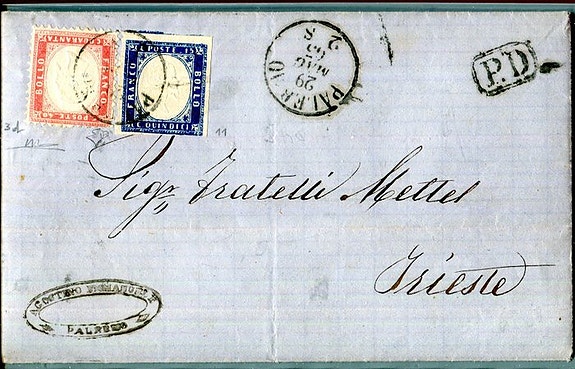 FRANCO BOLLO
C. QUARANTA
C. POSTE 40
C. POSTE 15
FRANCO BOLLO
C. QUINDICI
PALERMO
29
MAG
63
2 S
P.D
3d
11
Sigri Fratelli Mettel
Trieste
AGOSTINO
PALERMO